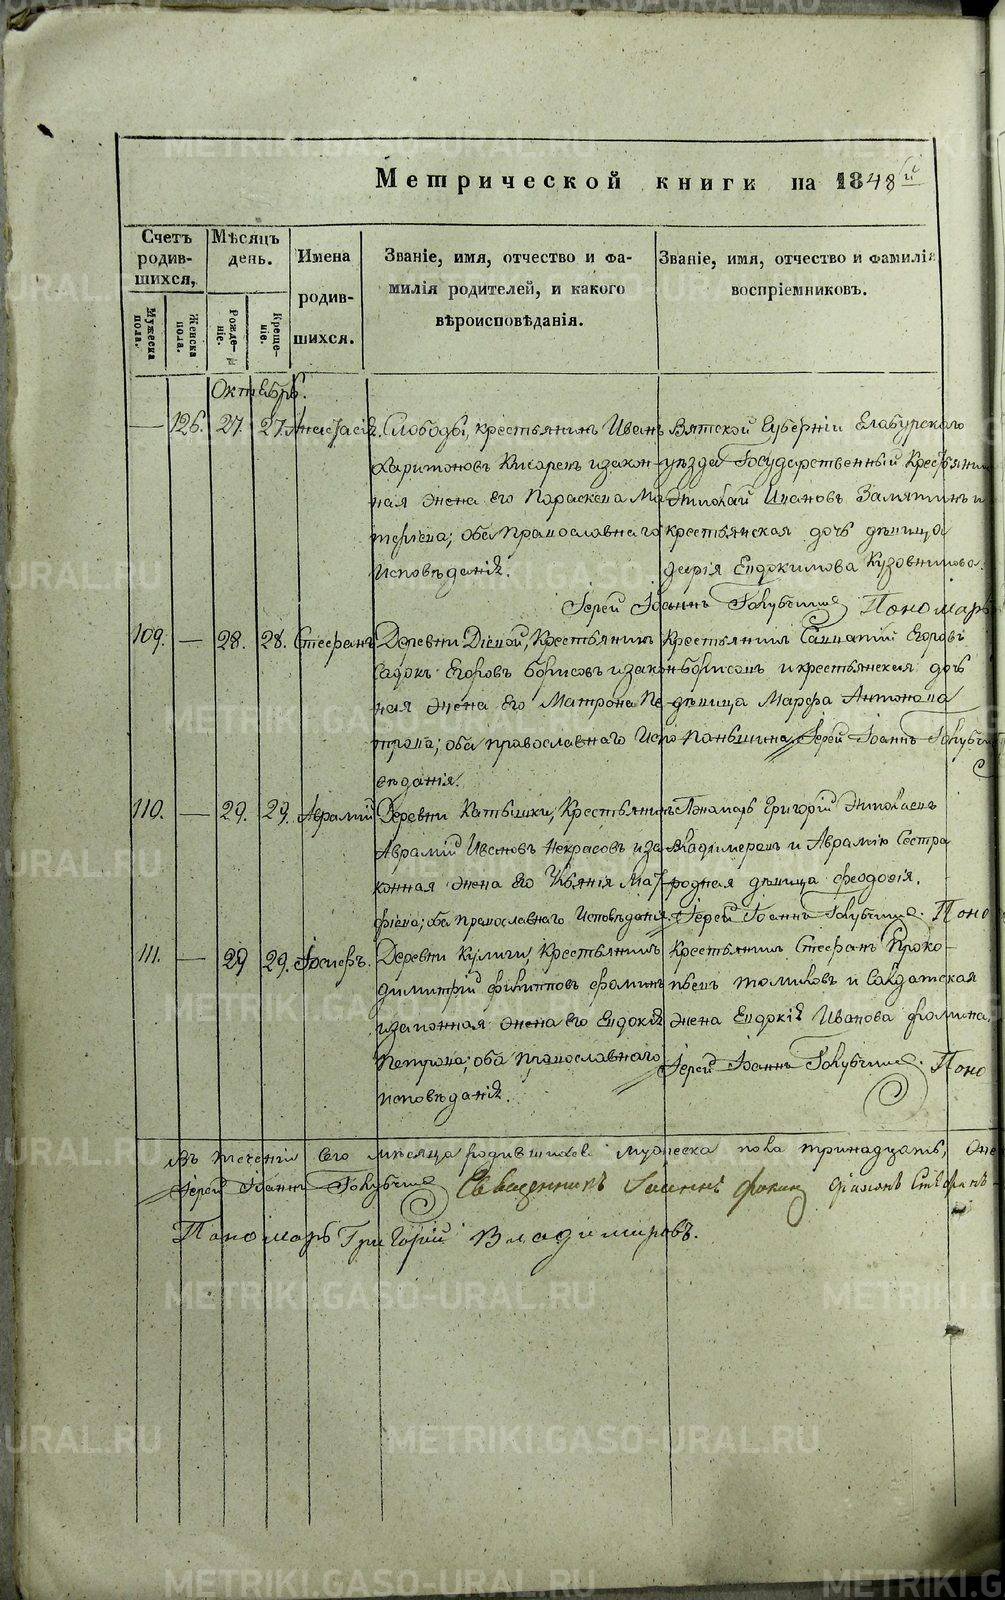 Метрической книги на 1848й
Счетъ родив-шихся,
Мѣсяцъ день.
Имена родив-шихся.
Званіе, имя, отчество и фа-
милія родителей, и какого
вѣроисповѣданія.
Званіе, имя, отчество и фамилія
воспріемниковъ.
Мужеска пола.
Женска пола.
Рожде-ніе.
Креще-ніе.
Октябрь.
— 126. 27. 27. Анастасія.
Слободы, крестьянинъ Иванъ
Харитоновъ и закон-
ная жена его Параскева Ма-
тѳіева; оба православнаго
исповѣданія.
Вятской Губерніи Елабурскаго
уѣзда Государственный крестьянин
Николай Ивановъ Замятинъ и
крестьянская дочь дѣвица
Дарія Евдокимова Кузовникова.
Іерей Іоаннъ Пономарь
109. — 28. 28. Стефанъ
Деревни Крестьянинъ
Егоровъ Борисовъ и закон-
ная жена его Матрона Пе-
трова; оба православнаго испо-
вѣданія.
Крестьянинъ Егоровъ
Борисовъ и крестьянская дочь
дѣвица Марфа Антонова
Паньшина. Іерей Іоаннъ
110. — 29. 29. Аврамій
Деревни Катышки, Крестьянинъ
Аврамій Ивановъ Некрасовъ и за-
конная жена его Мат-
фіева; оба православнаго исповѣданія
Понамарь Григорій Николаевъ
Владимеровъ и Аврамію сестра
родная дѣвица Феодосія.
Іерей Іоаннъ Поно
111. — 29 29. Іосифъ.
Деревни Кулиги, Крестьянинъ
Димитрій Филипповъ Фоминъ
и законная жена его Евдокія
Петрова; оба православнаго
исповѣданія.
Крестьянинъ Стефанъ Проко-
пьевъ Томиловъ и Солдатская
жена Евдокія Иванова Фомина.
Іерей Іоаннъ Поно
Въ теченіи сего мѣсяца родившихся: мужеска пола тринадцать,
Іерей Іоаннъ Священникъ Іоаннъ Фокин
Пономарь Григорій Владимировъ.
METRIKI.GASO-URAL.RU